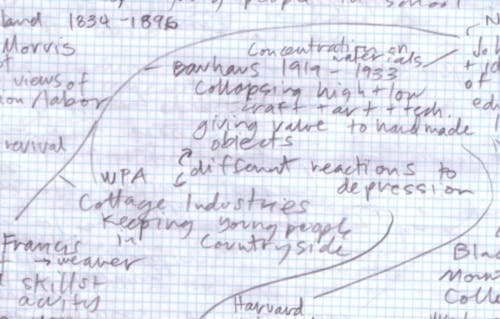 people in school
land 1834 - 1896
Morris
views of
ion/labor
revival
Concentration on
materials
Bauhaus 1919 - 1933
Collapsing high + low
craft + art + tech.
giving value to handmade
objects
different reactions to
depression
WPA
Cottage Industries
Keeping young people
in
Countryside
Francis
→ weaver
skills +
acuity
Harvard
of
Blac
Moun
Colle